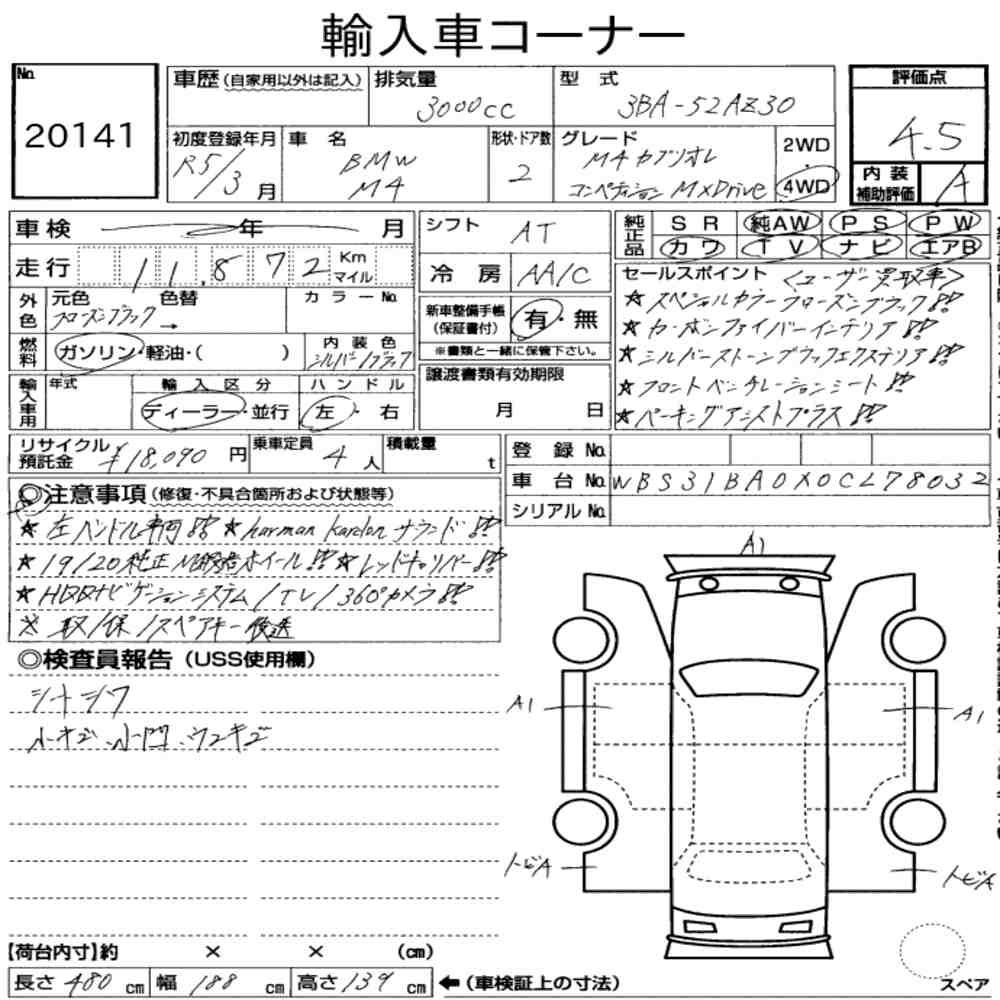 輸入車コーナー
No.
20141
車歴 (自家用以外は記入)
排気量
3000cc
型 式
3BA-52AZ30
評価点
4.5
内装補助評価
A
初度登録年月
R5/3月
車 名
BMW
M4
形状・ドア数
2
グレード
M4カブリオレ
コンペティション MxDrive
2WD
4WD
車検 年 月
走行 11,872 Km マイル
シフト AT
冷房 AA/C
純正品
SR 純AW PS PW
カワ TV ナビ エアB
外色
元色 色替
フローズンブラック →
カラーNo.
燃料
ガソリン・軽油・( )
内装色
シルバー/ブラック
新車整備手帳(保証書付)
有・無
※書類と一緒に保管下さい。
輸入車用
年式
輸入区分
ディーラー・並行
ハンドル
左・右
譲渡書類有効期限
月 日
セールスポイント <ユーザー買取車>
★スペシャルカラーフローズンブラック!!
★カーボンファイバーインテリア!!
★シルバーストーンブラックエクステリア!!
★フロントベンチレーションシート!!
★パーキングアシストプラス!!
リサイクル預託金 ¥18,090円
乗車定員 4人
積載量 t
登録No.
車台No. WBS31BA0X0CL78032
シリアルNo.
◎注意事項(修復・不具合個所および状態等)
★左ハンドル車両!! ★harman kardonサウンド!!
★19/20純正M鍛造ホイール!! ★レッドキャリパー!!
★HDDナビゲーションシステム/TV/360°カメラ!!
※ 取/保/スペアキー後送
◎検査員報告(USS使用欄)
シートシワ
小キズ、小凹、ワレキズ
A1
A1
A1
トビA
トビA
【荷台内寸】約 × × (cm)
長さ 480 cm 幅 188 cm 高さ 139 cm ←(車検証上の寸法)
スペア